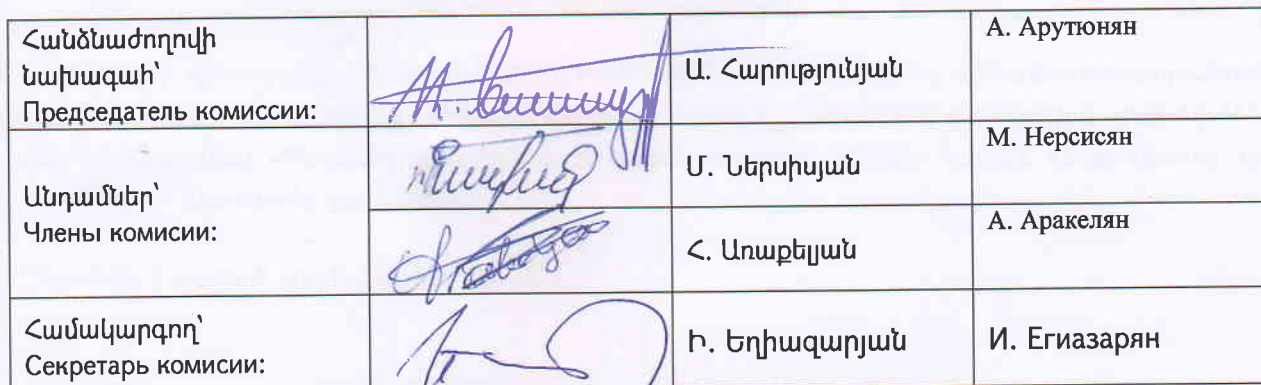 Հանձնաժողովի
նախագահ՝
Председатель комиссии:
Ա. Հարությունյան
А. Арутюнян
Անդամներ՝
Члены комисии:
Մ. Ներսիսյան
М. Нерсисян
Հ. Առաքելյան
А. Аракелян
Համակարգող՝
Секретарь комисии:
Ի. Եղիազարյան
И. Егиазарян